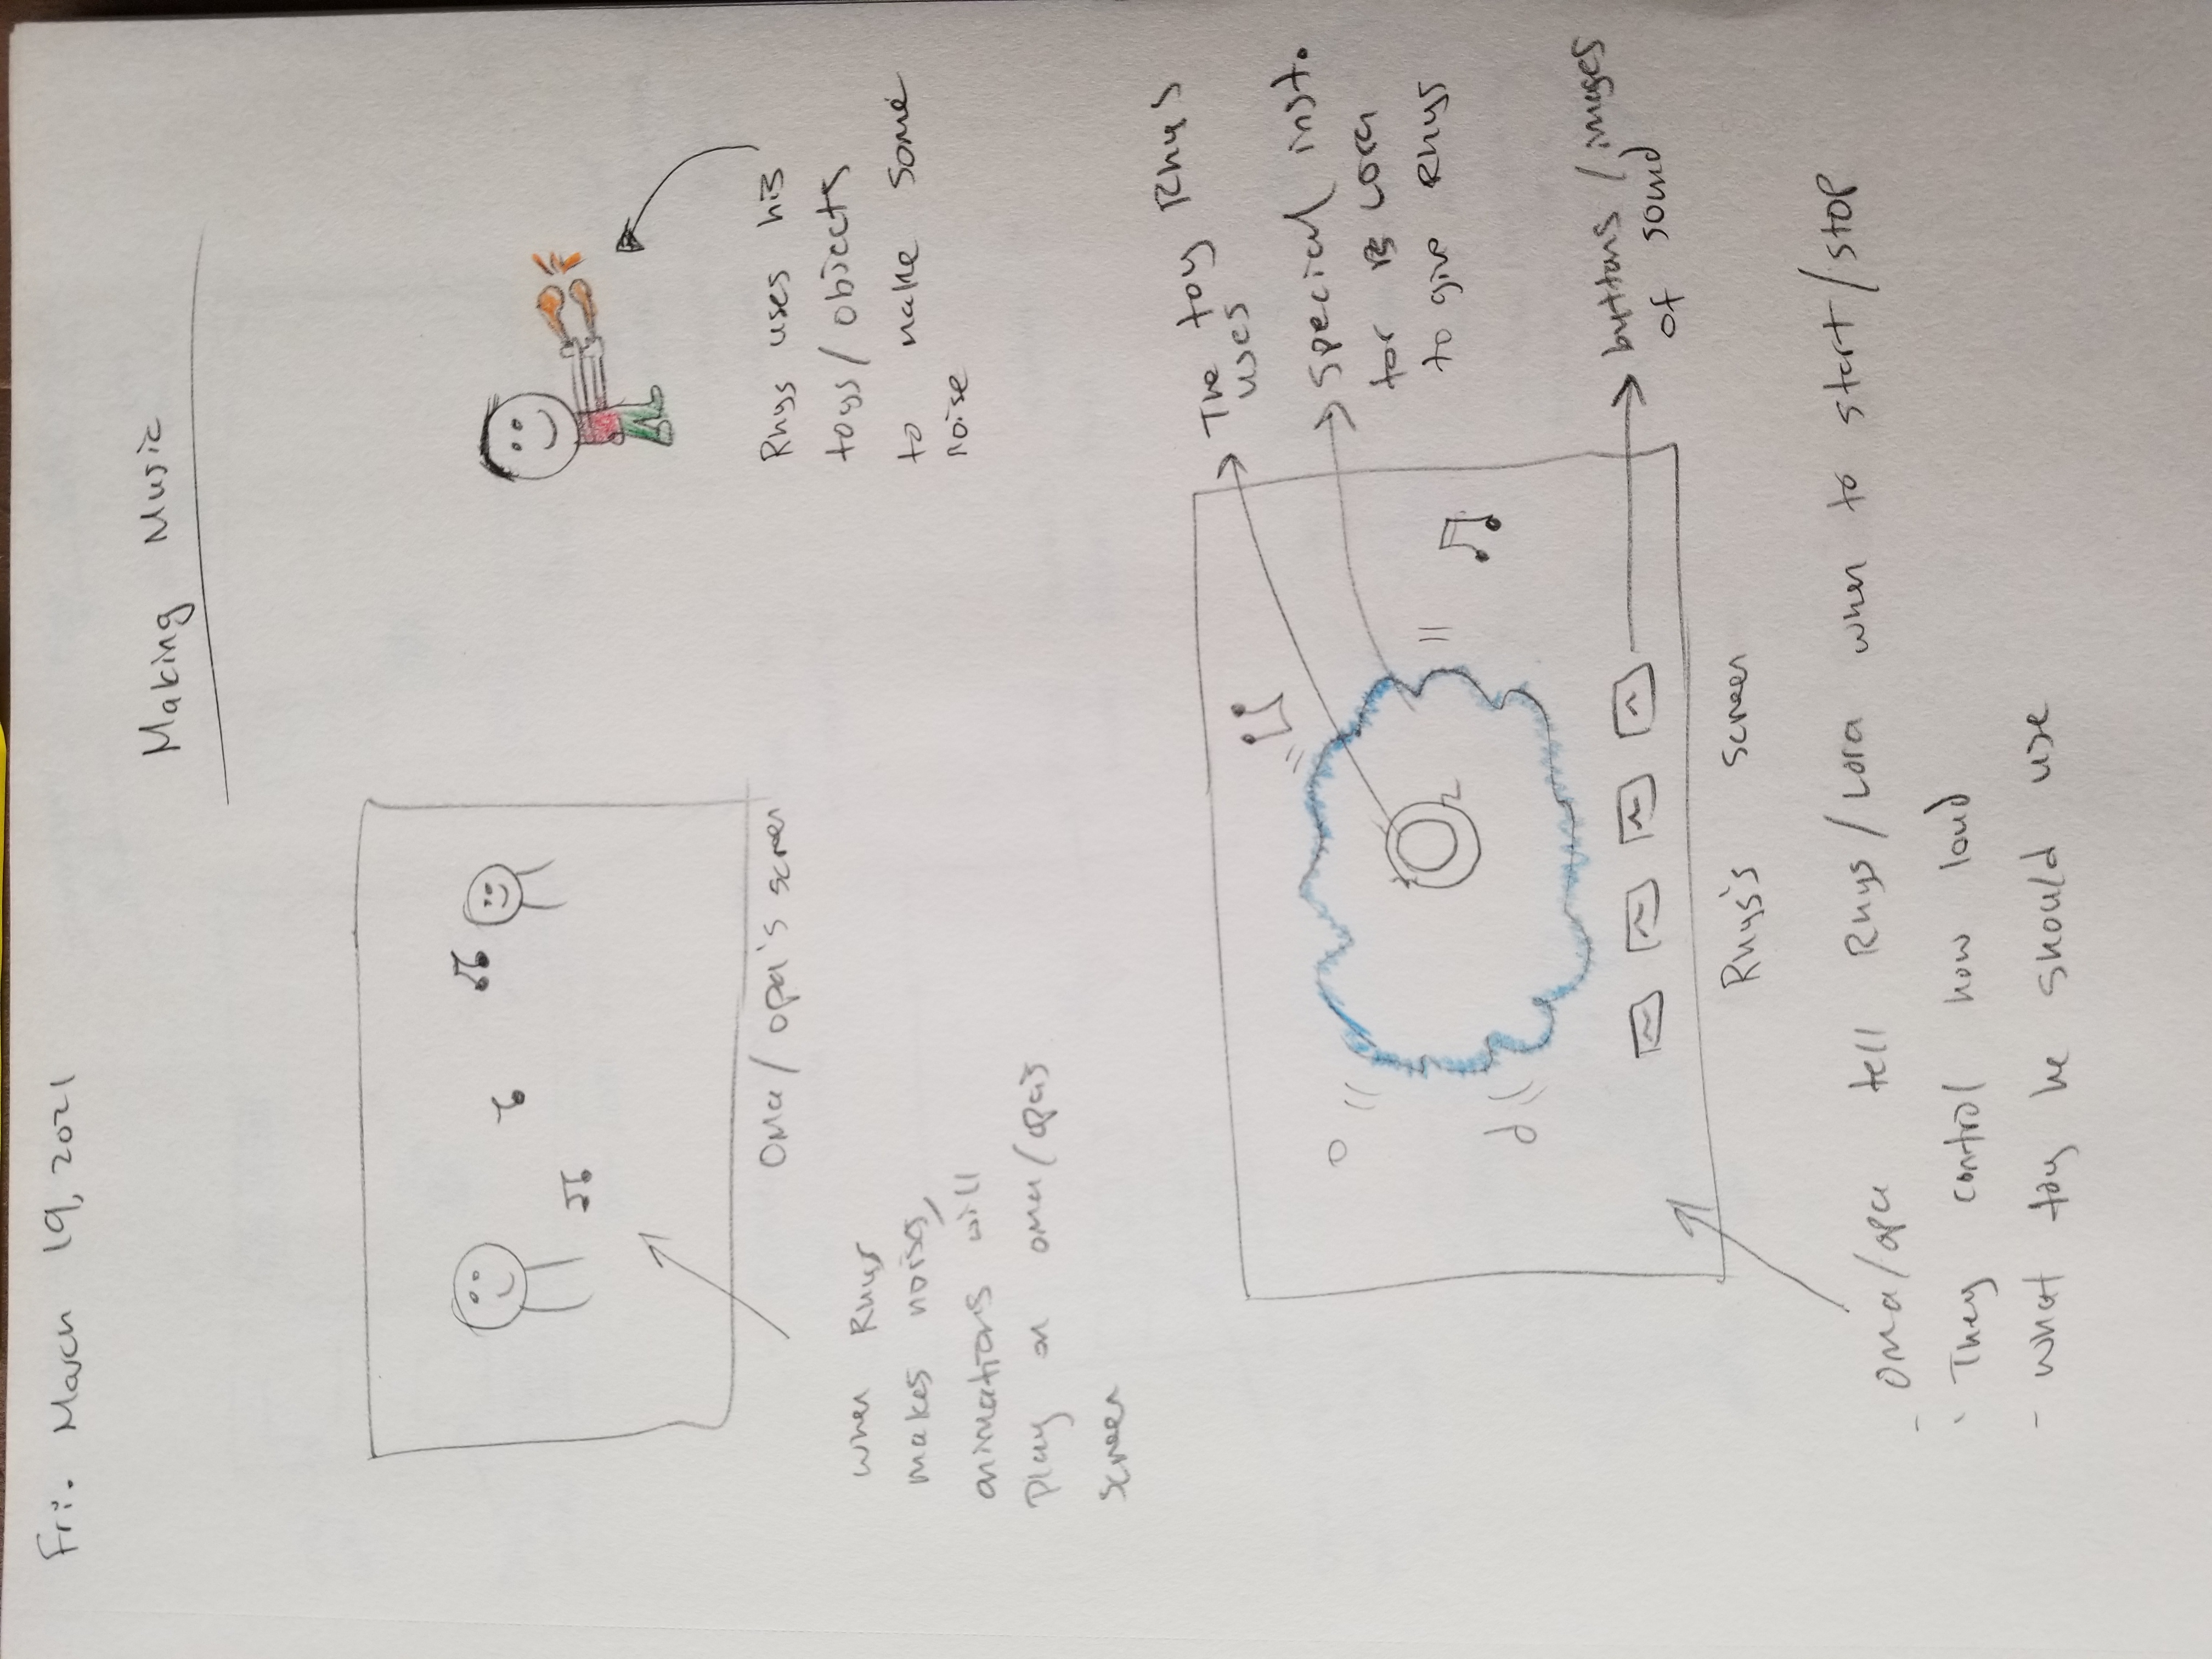 Fri. March 19, 2021
Making Music
Oma/opa's screen
when Rhys
makes noises,
animations will
play on oma/opa's
screen
Rhys uses his
toys/objects
to make some
noise
The toy Rhys
uses
special inst.
for Lora
to give Rhys
buttons/images
of sound
Rhys's screen
- Oma/opa tell Rhys/Lora when to start/stop
- They control how loud
- what toy he should use